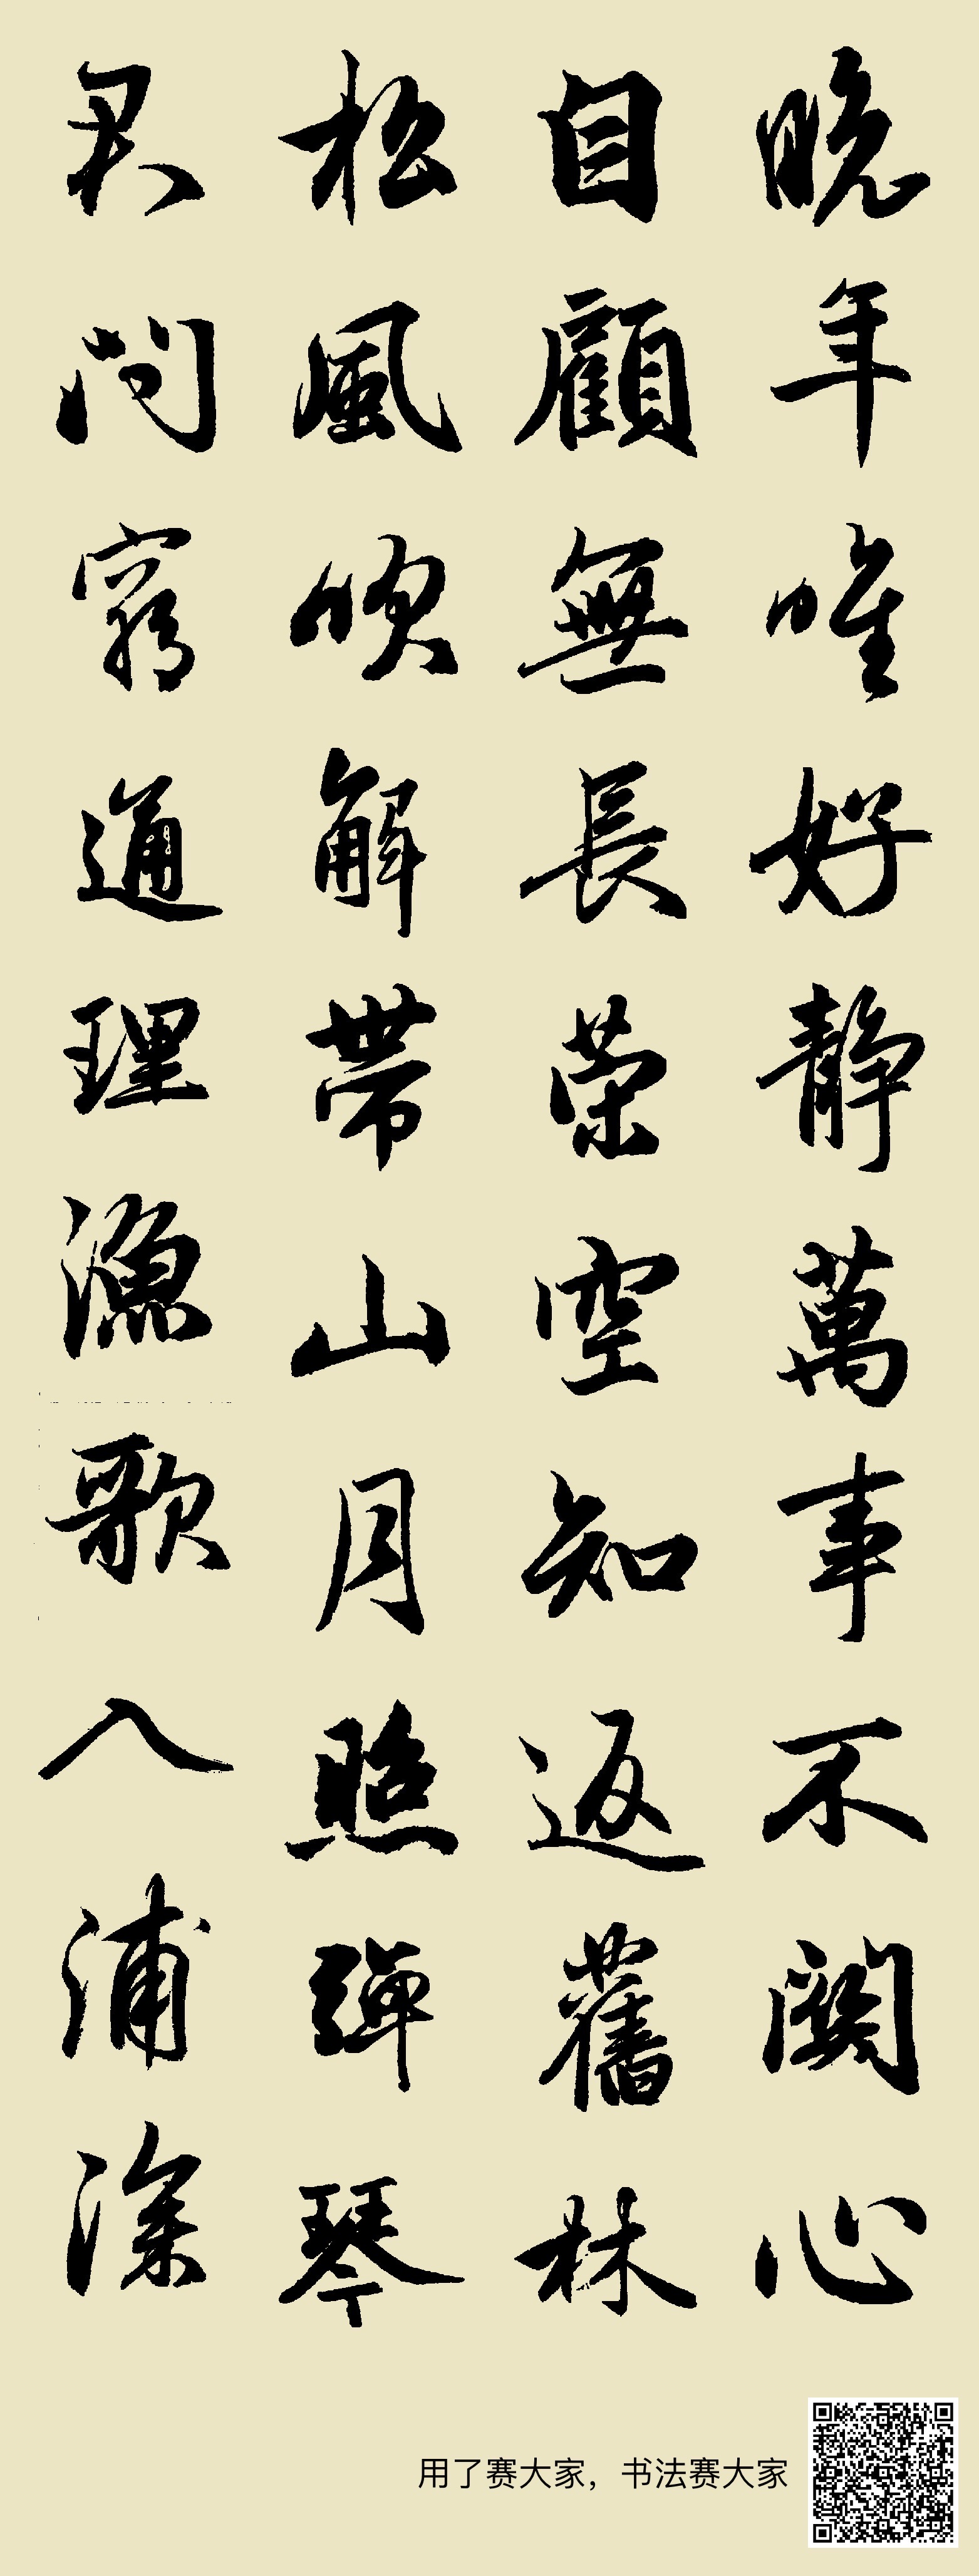 晚年唯好静萬事不關心
自顧無長策空知返舊林
松風吹解帶山月照彈琴
君問窮通理漁歌入浦深
用了赛大家，书法赛大家